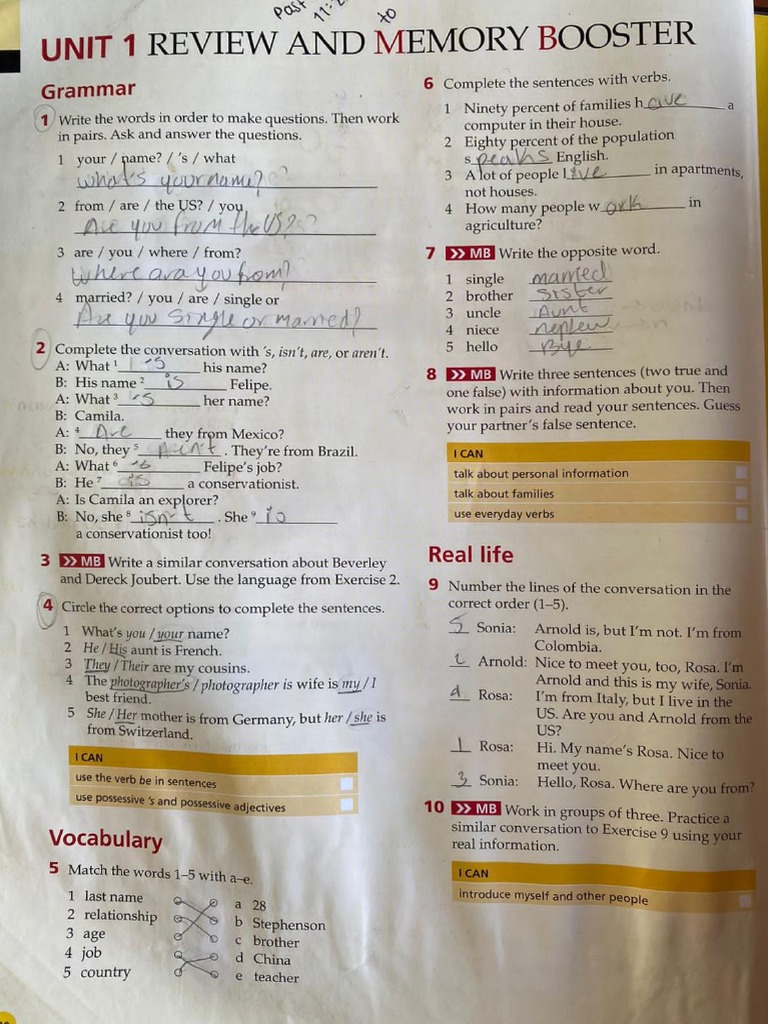 Past
11:2
to
UNIT 1 REVIEW AND MEMORY BOOSTER
Grammar
1 Write the words in order to make questions. Then work
in pairs. Ask and answer the questions.
1 your / name? / 's / what
what's your name?
2 from / are / the US? / you
Are you from the US?
3 are / you / where / from?
Where ara you from?
4 married? / you / are / single or
Are you Single or married?
2 Complete the conversation with 's, isn't, are, or aren't.
A: What ¹ 's his name?
B: His name ² is Felipe.
A: What ³ 's her name?
B: Camila.
A: ⁴ Are they from Mexico?
B: No, they ⁵ Aren't. They're from Brazil.
A: What ⁶ 's Felipe's job?
B: He ⁷ is a conservationist.
A: Is Camila an explorer?
B: No, she ⁸ isn't. She ⁹ is
a conservationist too!
3 >> MB Write a similar conversation about Beverley
and Dereck Joubert. Use the language from Exercise 2.
4 Circle the correct options to complete the sentences.
1 What's you / your name?
2 He / His aunt is French.
3 They / Their are my cousins.
4 The photographer's / photographer is wife is my / I
best friend.
5 She / Her mother is from Germany, but her / she is
from Switzerland.
I CAN
use the verb be in sentences
use possessive 's and possessive adjectives
Vocabulary
5 Match the words 1–5 with a–e.
1 last name a 28
2 relationship b Stephenson
3 age c brother
4 job d China
5 country e teacher
6 Complete the sentences with verbs.
1 Ninety percent of families have a
computer in their house.
2 Eighty percent of the population
speaks English.
3 A lot of people live in apartments,
not houses.
4 How many people work in
agriculture?
7 >> MB Write the opposite word.
1 single married
2 brother sister
3 uncle Aunt
4 niece nephew
5 hello Bye
8 >> MB Write three sentences (two true and
one false) with information about you. Then
work in pairs and read your sentences. Guess
your partner's false sentence.
I CAN
talk about personal information
talk about families
use everyday verbs
Real life
9 Number the lines of the conversation in the
correct order (1–5).
5 Sonia: Arnold is, but I'm not. I'm from
Colombia.
2 Arnold: Nice to meet you, too, Rosa. I'm
Arnold and this is my wife, Sonia.
4 Rosa: I'm from Italy, but I live in the
US. Are you and Arnold from the
US?
1 Rosa: Hi. My name's Rosa. Nice to
meet you.
3 Sonia: Hello, Rosa. Where are you from?
10 >> MB Work in groups of three. Practice a
similar conversation to Exercise 9 using your
real information.
I CAN
introduce myself and other people